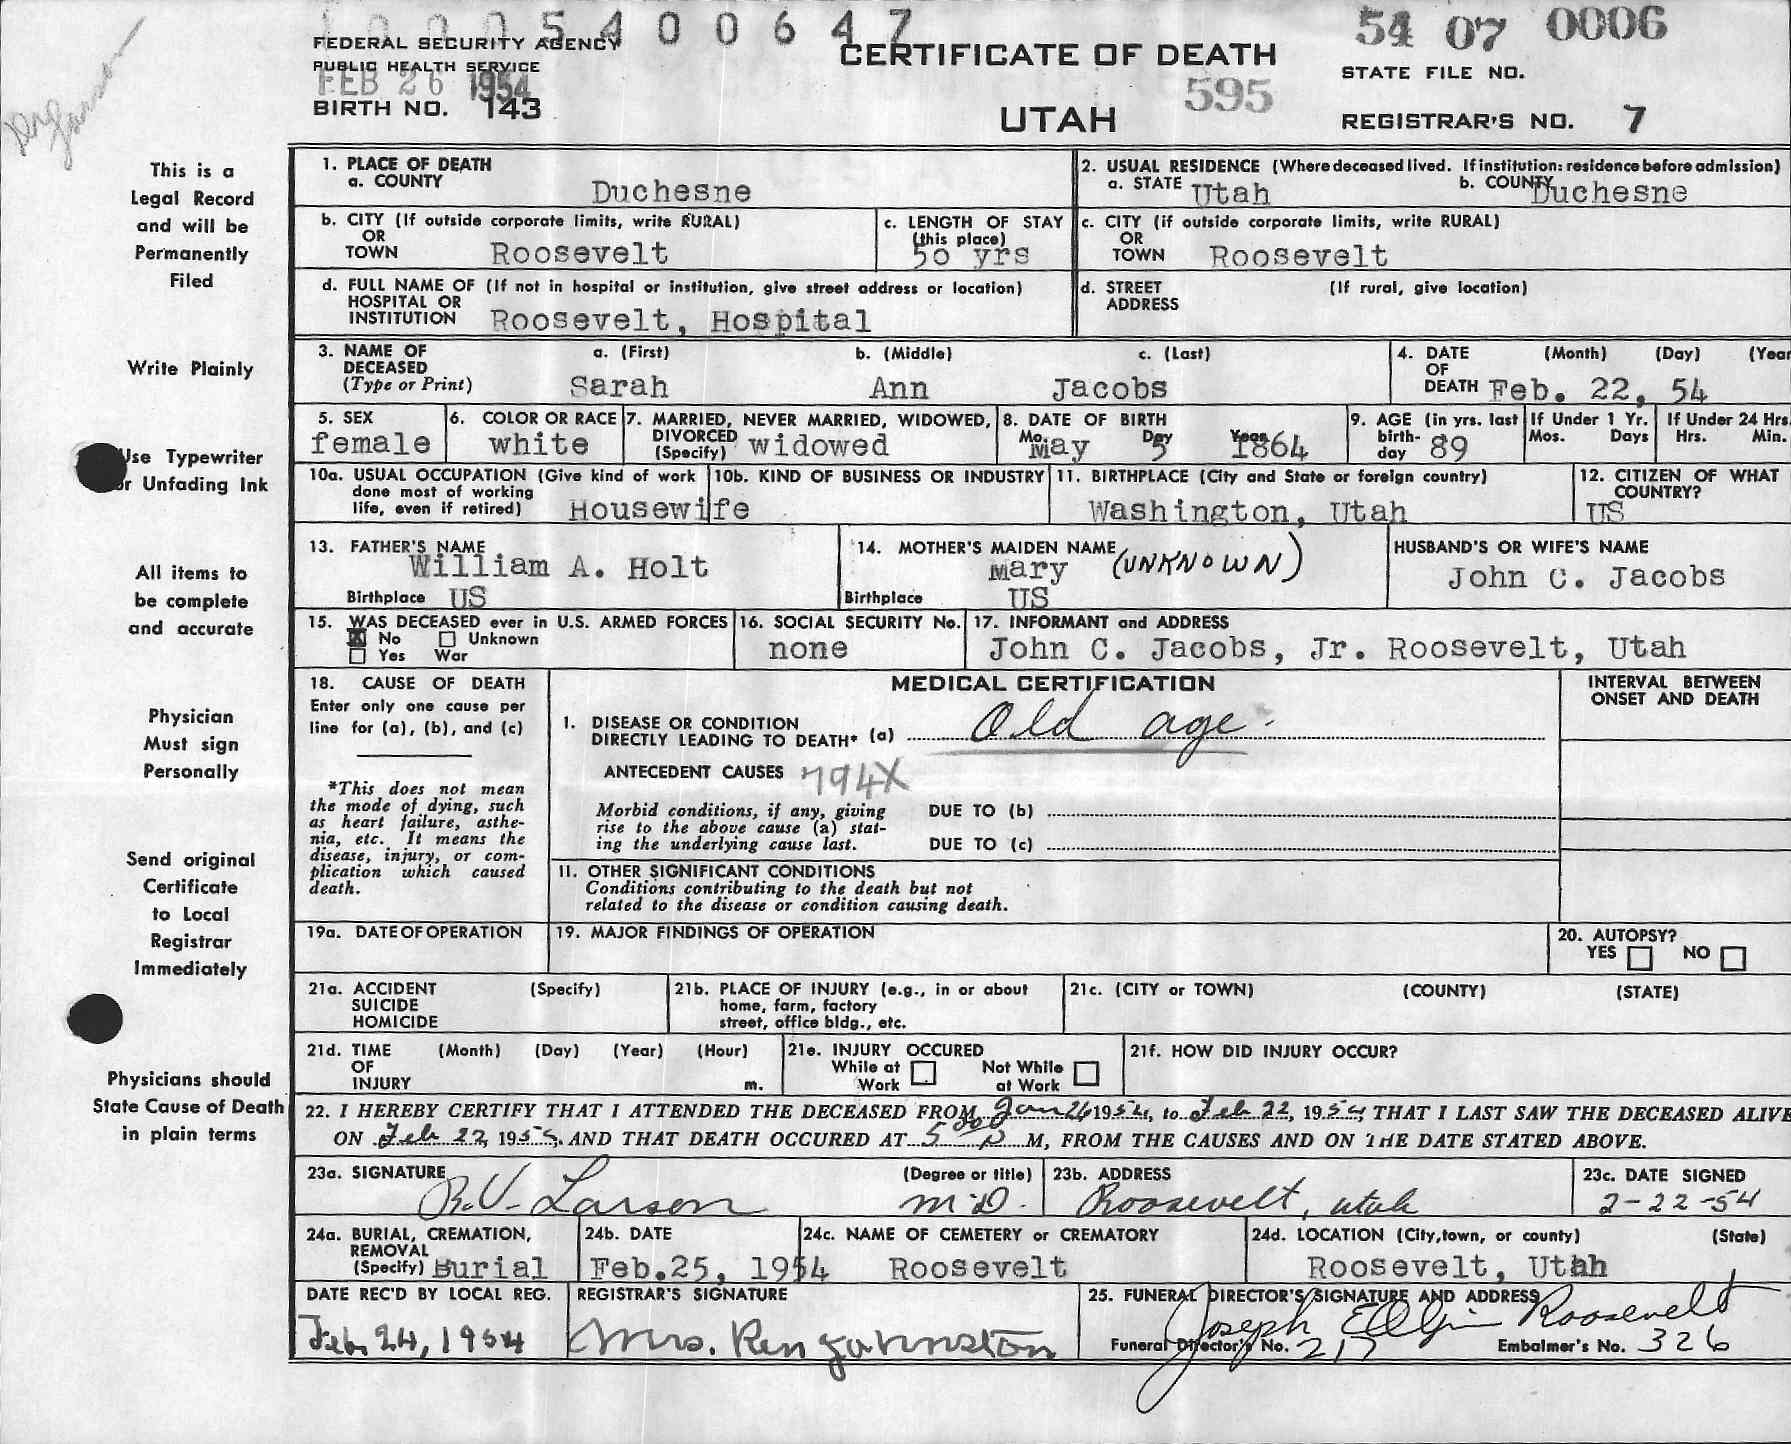 1000540064 7
54 07 0006
FEDERAL SECURITY AGENCY
PUBLIC HEALTH SERVICE
FEB 26 1954
BIRTH NO. 143
CERTIFICATE OF DEATH
UTAH
595
STATE FILE NO.
REGISTRAR'S NO. 7
This is a
Legal Record
and will be
Permanently
Filed
Write Plainly
Use Typewriter
or Unfading Ink
All items to
be complete
and accurate
Physician
Must sign
Personally
Send original
Certificate
to Local
Registrar
Immediately
Physicians should
State Cause of Death
in plain terms
1. PLACE OF DEATH
a. COUNTY Duchesne
2. USUAL RESIDENCE (Where deceased lived. If institution: residence before admission)
a. STATE Utah b. COUNTY Duchesne
b. CITY (If outside corporate limits, write RURAL)
OR
TOWN Roosevelt
c. LENGTH OF STAY
(this place)
50 yrs
c. CITY (if outside corporate limits, write RURAL)
OR
TOWN Roosevelt
d. FULL NAME OF (If not in hospital or institution, give street address or location)
HOSPITAL OR
INSTITUTION Roosevelt, Hospital
d. STREET (If rural, give location)
ADDRESS
3. NAME OF a. (First) b. (Middle) c. (Last)
DECEASED
(Type or Print) Sarah Ann Jacobs
4. DATE (Month) (Day) (Year
OF
DEATH Feb. 22, 54
5. SEX
female
6. COLOR OR RACE
white
7. MARRIED, NEVER MARRIED, WIDOWED,
DIVORCED
(Specify) widowed
8. DATE OF BIRTH
Mo. May Day 5 Year 1864
9. AGE (in yrs. last
birth-
day 89
If Under 1 Yr.
Mos. Days
If Under 24 Hrs.
Hrs. Min.
10a. USUAL OCCUPATION (Give kind of work
done most of working
life, even if retired) Housewife
10b. KIND OF BUSINESS OR INDUSTRY
11. BIRTHPLACE (City and State or foreign country)
Washington, Utah
12. CITIZEN OF WHAT
COUNTRY?
US
13. FATHER'S NAME
William A. Holt
Birthplace US
14. MOTHER'S MAIDEN NAME
Mary (UNKNOWN)
Birthplace US
HUSBAND'S OR WIFE'S NAME
John C. Jacobs
15. WAS DECEASED ever in U.S. ARMED FORCES
No Unknown
Yes War
16. SOCIAL SECURITY No.
none
17. INFORMANT and ADDRESS
John C. Jacobs, Jr. Roosevelt, Utah
18. CAUSE OF DEATH
Enter only one cause per
line for (a), (b), and (c)
*This does not mean
the mode of dying, such
as heart failure, asthe-
nia, etc. It means the
disease, injury, or com-
plication which caused
death.
MEDICAL CERTIFICATION
INTERVAL BETWEEN
ONSET AND DEATH
1. DISEASE OR CONDITION
DIRECTLY LEADING TO DEATH* (a) Old age.
ANTECEDENT CAUSES 794X
Morbid conditions, if any, giving
rise to the above cause (a) stat-
ing the underlying cause last.
DUE TO (b)
DUE TO (c)
11. OTHER SIGNIFICANT CONDITIONS
Conditions contributing to the death but not
related to the disease or condition causing death.
19a. DATE OF OPERATION
19. MAJOR FINDINGS OF OPERATION
20. AUTOPSY?
YES NO
21a. ACCIDENT (Specify)
SUICIDE
HOMICIDE
21b. PLACE OF INJURY (e.g., in or about
home, farm, factory
street, office bldg., etc.
21c. (CITY or TOWN) (COUNTY) (STATE)
21d. TIME (Month) (Day) (Year) (Hour)
OF
INJURY m.
21e. INJURY OCCURED
While at Work
Not While at Work
21f. HOW DID INJURY OCCUR?
22. I HEREBY CERTIFY THAT I ATTENDED THE DECEASED FROM Jan 26 1954, to Feb 22, 1954, THAT I LAST SAW THE DECEASED ALIVE
ON Feb 22, 1954, AND THAT DEATH OCCURED AT 5 00 P M, FROM THE CAUSES AND ON THE DATE STATED ABOVE.
23a. SIGNATURE (Degree or title)
R.V. Larson M.D.
23b. ADDRESS
Roosevelt, utah
23c. DATE SIGNED
2-22-54
24a. BURIAL, CREMATION,
REMOVAL
(Specify) Burial
24b. DATE
Feb.25, 1954
24c. NAME OF CEMETERY or CREMATORY
Roosevelt
24d. LOCATION (City,town, or county) (State)
Roosevelt, Utah
DATE REC'D BY LOCAL REG.
Feb. 24, 1954
REGISTRAR'S SIGNATURE
Mrs. Ken Johnston
25. FUNERAL DIRECTOR'S SIGNATURE AND ADDRESS
Joseph Roosevelt
Funeral Director's No. 217 Embalmer's No. 326